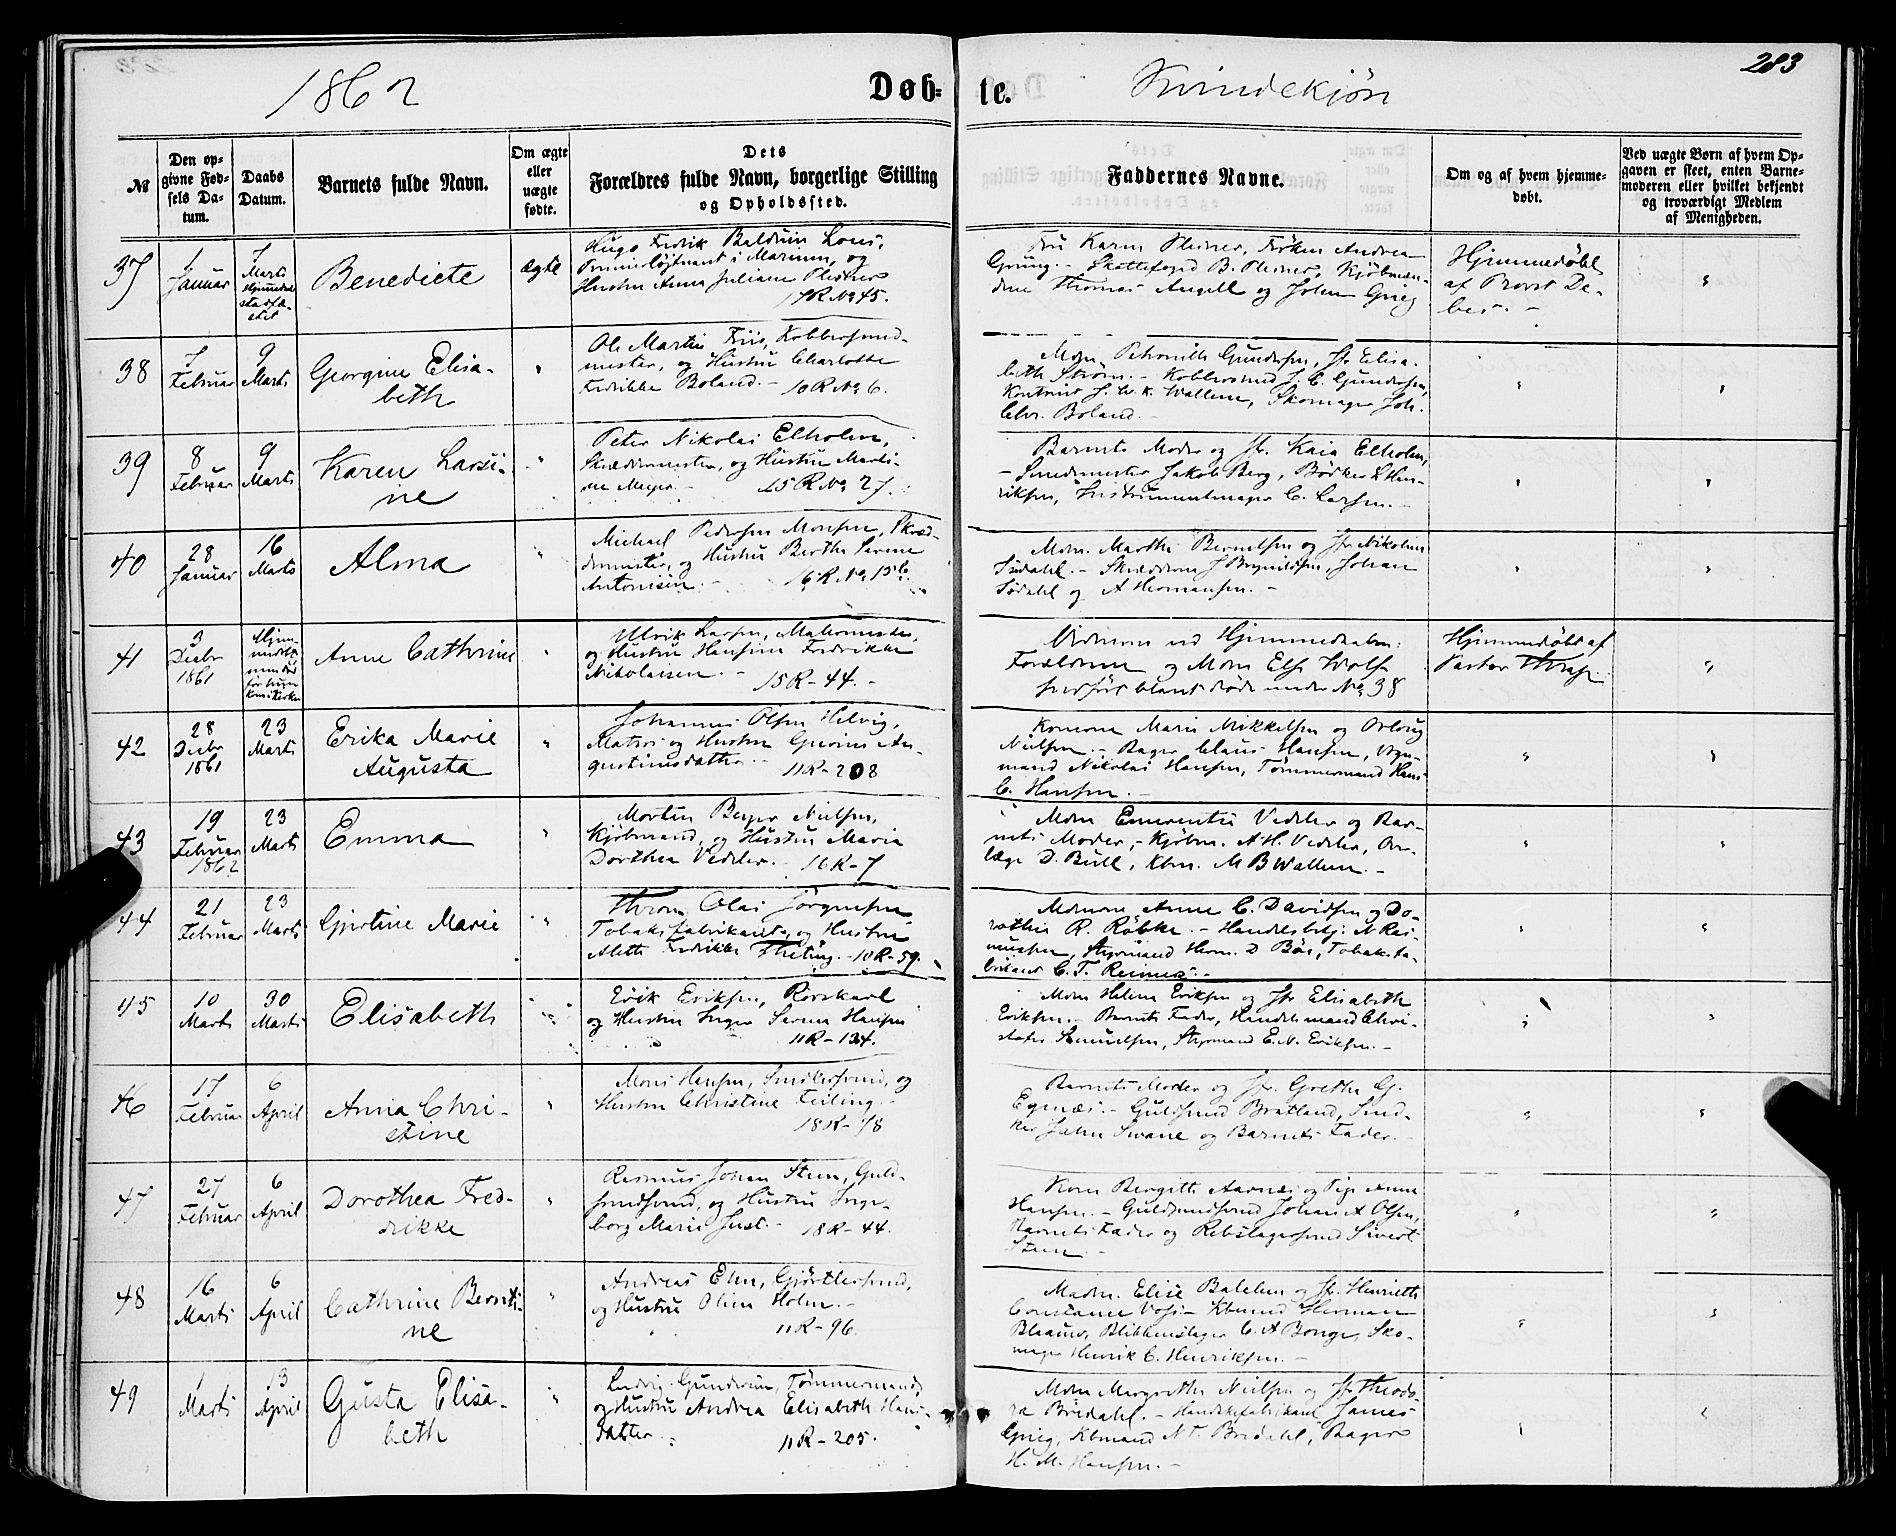 283
1862
Døb-
te.
Kvindekjøn
№
Den op-
givne Fød-
sels Da-
tum.
Daabs
Datum.
Barnets fulde Navn.
Om ægte
eller
uægte
fødte.
Dets
Forældres fulde Navn, borgerlige Stilling
og Opholdssted.
Faddernes Navne.
Om og af hvem hjemme-
døbt.
Ved uægte Børn af hvem Op-
gaven er skeet, enten Barne-
moderen eller hvilket bekjendt
og troværdigt Medlem
af Menigheden.
37
1
Januar
7
Marts
Benedicte
ægte
Hugo Fredrik Balduin
Premierløjtnant i Marinen, og
Hustru Anna Juliane
17R No 45.
Fru Karen Frøken Andrea
Grüng. - Skattefoged B. Kjøbmæn-
dene Thomas Angell og John Grieg
Hjemmedøbt
af Provst De-
bes. -
38
7
Februar
9
Marts
Georgine Elisa-
beth
"
Ole Martin Friis, Kobbersmed-
mester, og Hustru Charlotte
Fredrikke Boland. - 10R No 6.
Mdm Petronille Gundersen, Jfr Elisa-
beth Strøm. - Kobbersmed J. C. Gundersen,
J. W. K. Wallem, Skomager Joh.
Chr. Boland. -
39
8
Februar
9
Marts
Karen Larsi-
ne
"
Peter Nikolai Elholm,
Skræddermester, og Hustru Marti-
ne Meyer. - 15R No 27.
Barnets Moder og Jfr. Kaia Elholm,
- Smedmester Jakob Berg, Bødker L Hen-
riksen, Instrumentmager C. Larsen. -
40
28
Januar
16
Marts
Alma
"
Michael Pedersen Monsen, Skræd-
dermester, og Hustru Berthe Serine
Antonisen. - 16R No 15b.
Mdm. Marthe Berntsen og Jfr Nikoline
Sødahl. - Skrædderne J Brynildsen, Johan
Sødahl og A Thomassen. -
41
3
Decbr
1861
Anne Cathrine
"
Ulrik Larsen, Malermester,
og Hustru Hansine Fredrikke
Nikolaisen. - 15R - 44 -
Vidnerne ved Hjemmedaaben:
Forældrene og Mdm Else Wolf
indført blant døde under No 38
Hjemmedøbt af
Pastor
42
28
Decbr
1861
23
Marts
Erika Marie
Augusta
"
Johannes Olsen Helvig,
Matros og Hustru Gurine Au-
gustinusdatter. - 11R - 208
Konerne Marie Mikkelsen og
Nielsen. - Bager Claus Hansen, Vogn-
mand Nikolai Hansen, Tømmermand Hans
C. Hansen. -
43
19
Februar
1862
23
Marts
Emma
"
Morten Beyer Nielsen,
Kjøbmand, og Hustru Maria
Dorthea Vedeler. - 16R - 7
Mdm Emerentia Vedeler og Bar-
nets Moder, - Kjøbm. A. H. Vedeler, Over-
læge D. Bull, Kbm. M B Wallem. -
44
21
Februar
23
Marts
Gjertine Marie
"
Olai Jørgensen
Tobaksfabrikant, og Hustru
Alette Fredrikke - 10R - 59.
Mdmerne Anne C. Davidsen og Do-
rothea R. Røbke. - Handelsbetj. N Ras-
mussen, Styrmand Herm. D Bøe, Tobaksfa-
brikant C. T. Reimers. -
45
10
Marts
30
Marts
Elisabeth
"
Erik Eriksen, Rorskarl
og Hustru Inger Serina Hansen
11R - 134.
Mdm Helene Eriksen og Jfr Elisabeth
Eriksen. - Barnets Fader, Handelsmand Chri-
stofer Samuelsen, Styrmand E. N. Eriksen. -
46
17
Februar
6
April
Anna Chri-
stine
"
Mons Hansen, Snedkersvend, og
Hustru Christine Teiling. -
18R - 78
Barnets Moder og Jfr. Grethe G.
Egenæs. - Guldsmed Bratland, Sned-
ker Jahn Svane og Barnets Fader. -
47
27
Februar
6
April
Dorothea Fred-
rikke
"
Rasmus Johan Steen, Guld-
smedsvend, og Hustru Inge-
borg Marie Just. - 18R - 44.
Kone Bergitte Aarnæs og Pige Anne
Hansen. - Guldsmedsvend Johan A Olsen,
Barnets Fader og Rebslagersvend Sivert
Steen. -
48
16
Marts
6
April
Cathrine Bernti-
ne
"
Andreas Ehn, Gjørtlersvend,
og Hustru Oline Holm. -
11R - 96.
Madm. Elise Balchen og Jfr. Henriette
Constance Voss. - Kbmand Herman
Blaauw, Blikkenslager C. A Bonge, Sko-
mager Henrik C. Henriksen. -
49
1
Marts
13
April
Gusta Elisa-
beth
"
Ludvig Gundersen, Tømmermand,
og Hustru Andrea Elisabeth Hans-
datter. - 11R - 205.
Mdm Margrethe Nielsen og Jfr Theodo-
ra Bredahl. - Handskefabrikant James
Grieg, Kbmand N T. Bredahl, Bager
H. M. Hansen. -